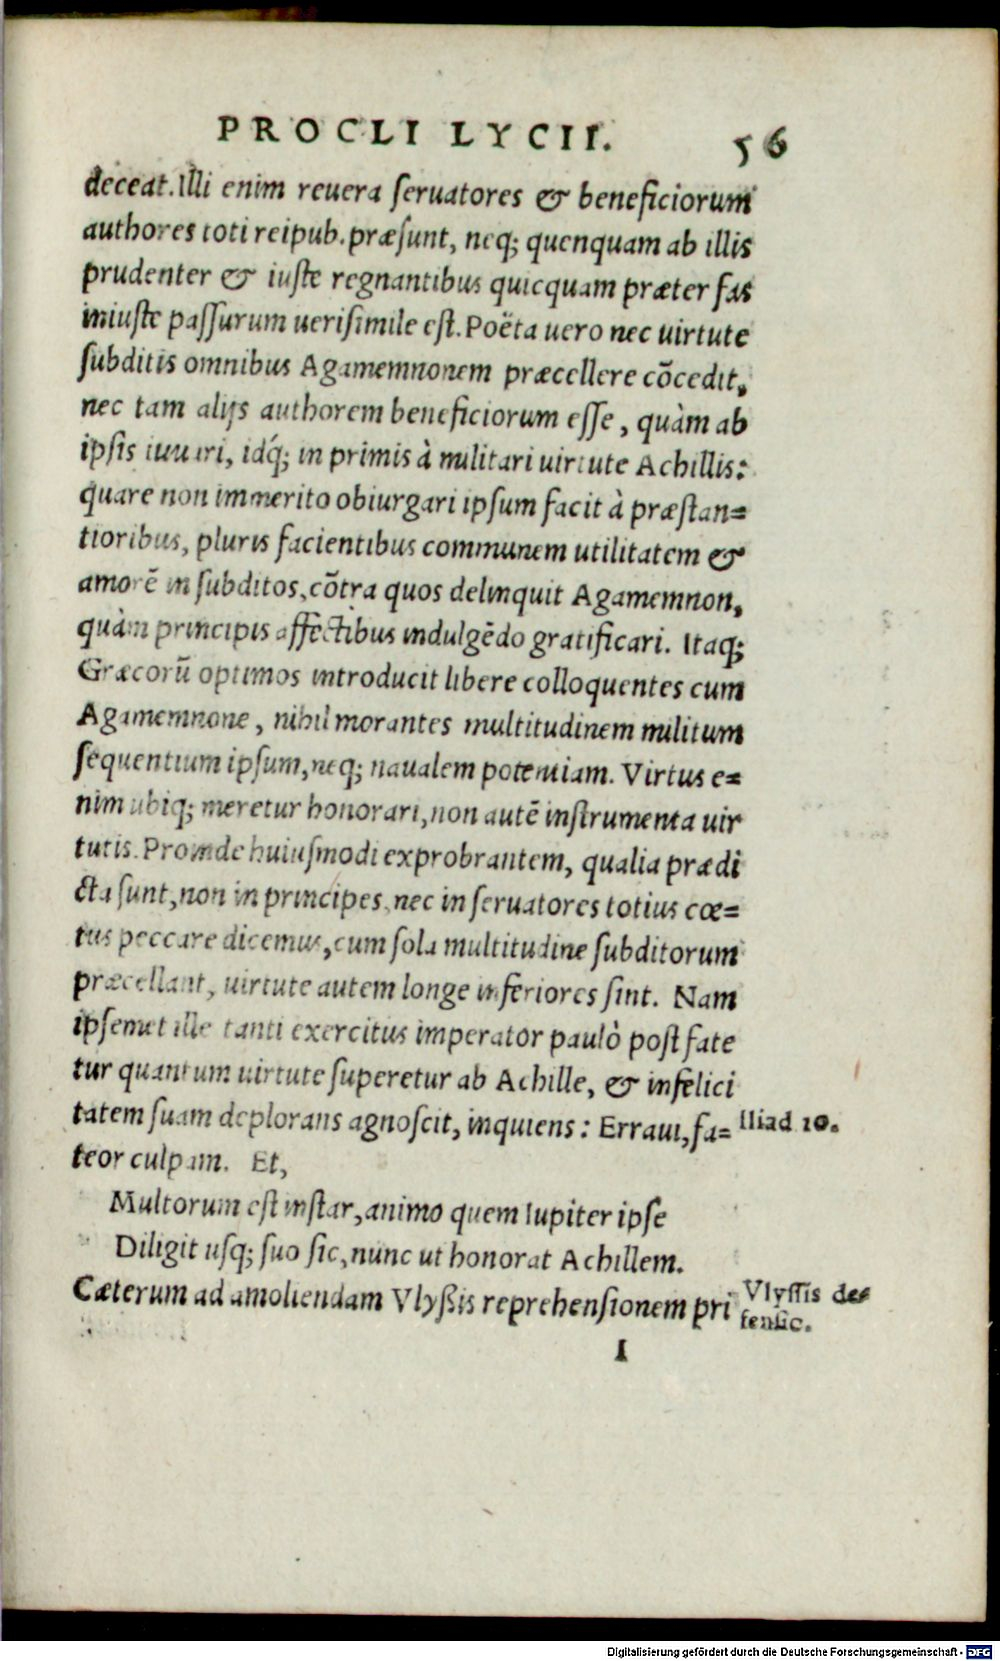 PROCLI LYCII. 56
deceat. Illi enim reuera ſeruatores & beneficiorum
authores toti reipub. præſunt, neq; quenquam ab illis
prudenter & iuſte regnantibus quicquam præter fas
iniuſte paſſurum ueriſimile eſt. Poëta uero nec uirtute
ſubditis omnibus Agamemnonem præcellere cōcedit,
nec tam alijs authorem beneficiorum eſſe, quàm ab
ipſis iuuari, idq́; in primis à militari uirtute Achillis:
quare non immerito obiurgari ipſum facit à præſtan=
tioribus, pluris facientibus communem utilitatem &
amorē in ſubditos, cōtra quos delinquit Agamemnon,
quàm principis affectibus indulgēdo gratificari. Itaq;
Græcorū optimos introducit libere colloquentes cum
Agamemnone, nihil morantes multitudinem militum
ſequentium ipſum, neq; naualem potentiam. Virtus e=
nim ubiq; meretur honorari, non autē inſtrumenta uir
tutis. Proinde huiuſmodi exprobrantem, qualia prædi
cta ſunt, non in principes, nec in ſeruatores totius cœ=
tus peccare dicemus, cum ſola multitudine ſubditorum
præcellant, uirtute autem longe inferiores ſint. Nam
ipſemet ille tanti exercitus imperator paulò poſt fate
tur quantum uirtute ſuperetur ab Achille, & infelici
tatem ſuam deplorans agnoſcit, inquiens: Erraui, fa=
Iliad 10.
teor culpam. Et,
Multorum eſt inſtar, animo quem Iupiter ipſe
Diligit uſq; ſuo ſic, nunc ut honorat Achillem.
Cæterum ad amoliendam Vlyßis reprehenſionem pri
Vlyſſis de=
fenſio.
I
Digitalisierung gefördert durch die Deutsche Forschungsgemeinschaft - DFG